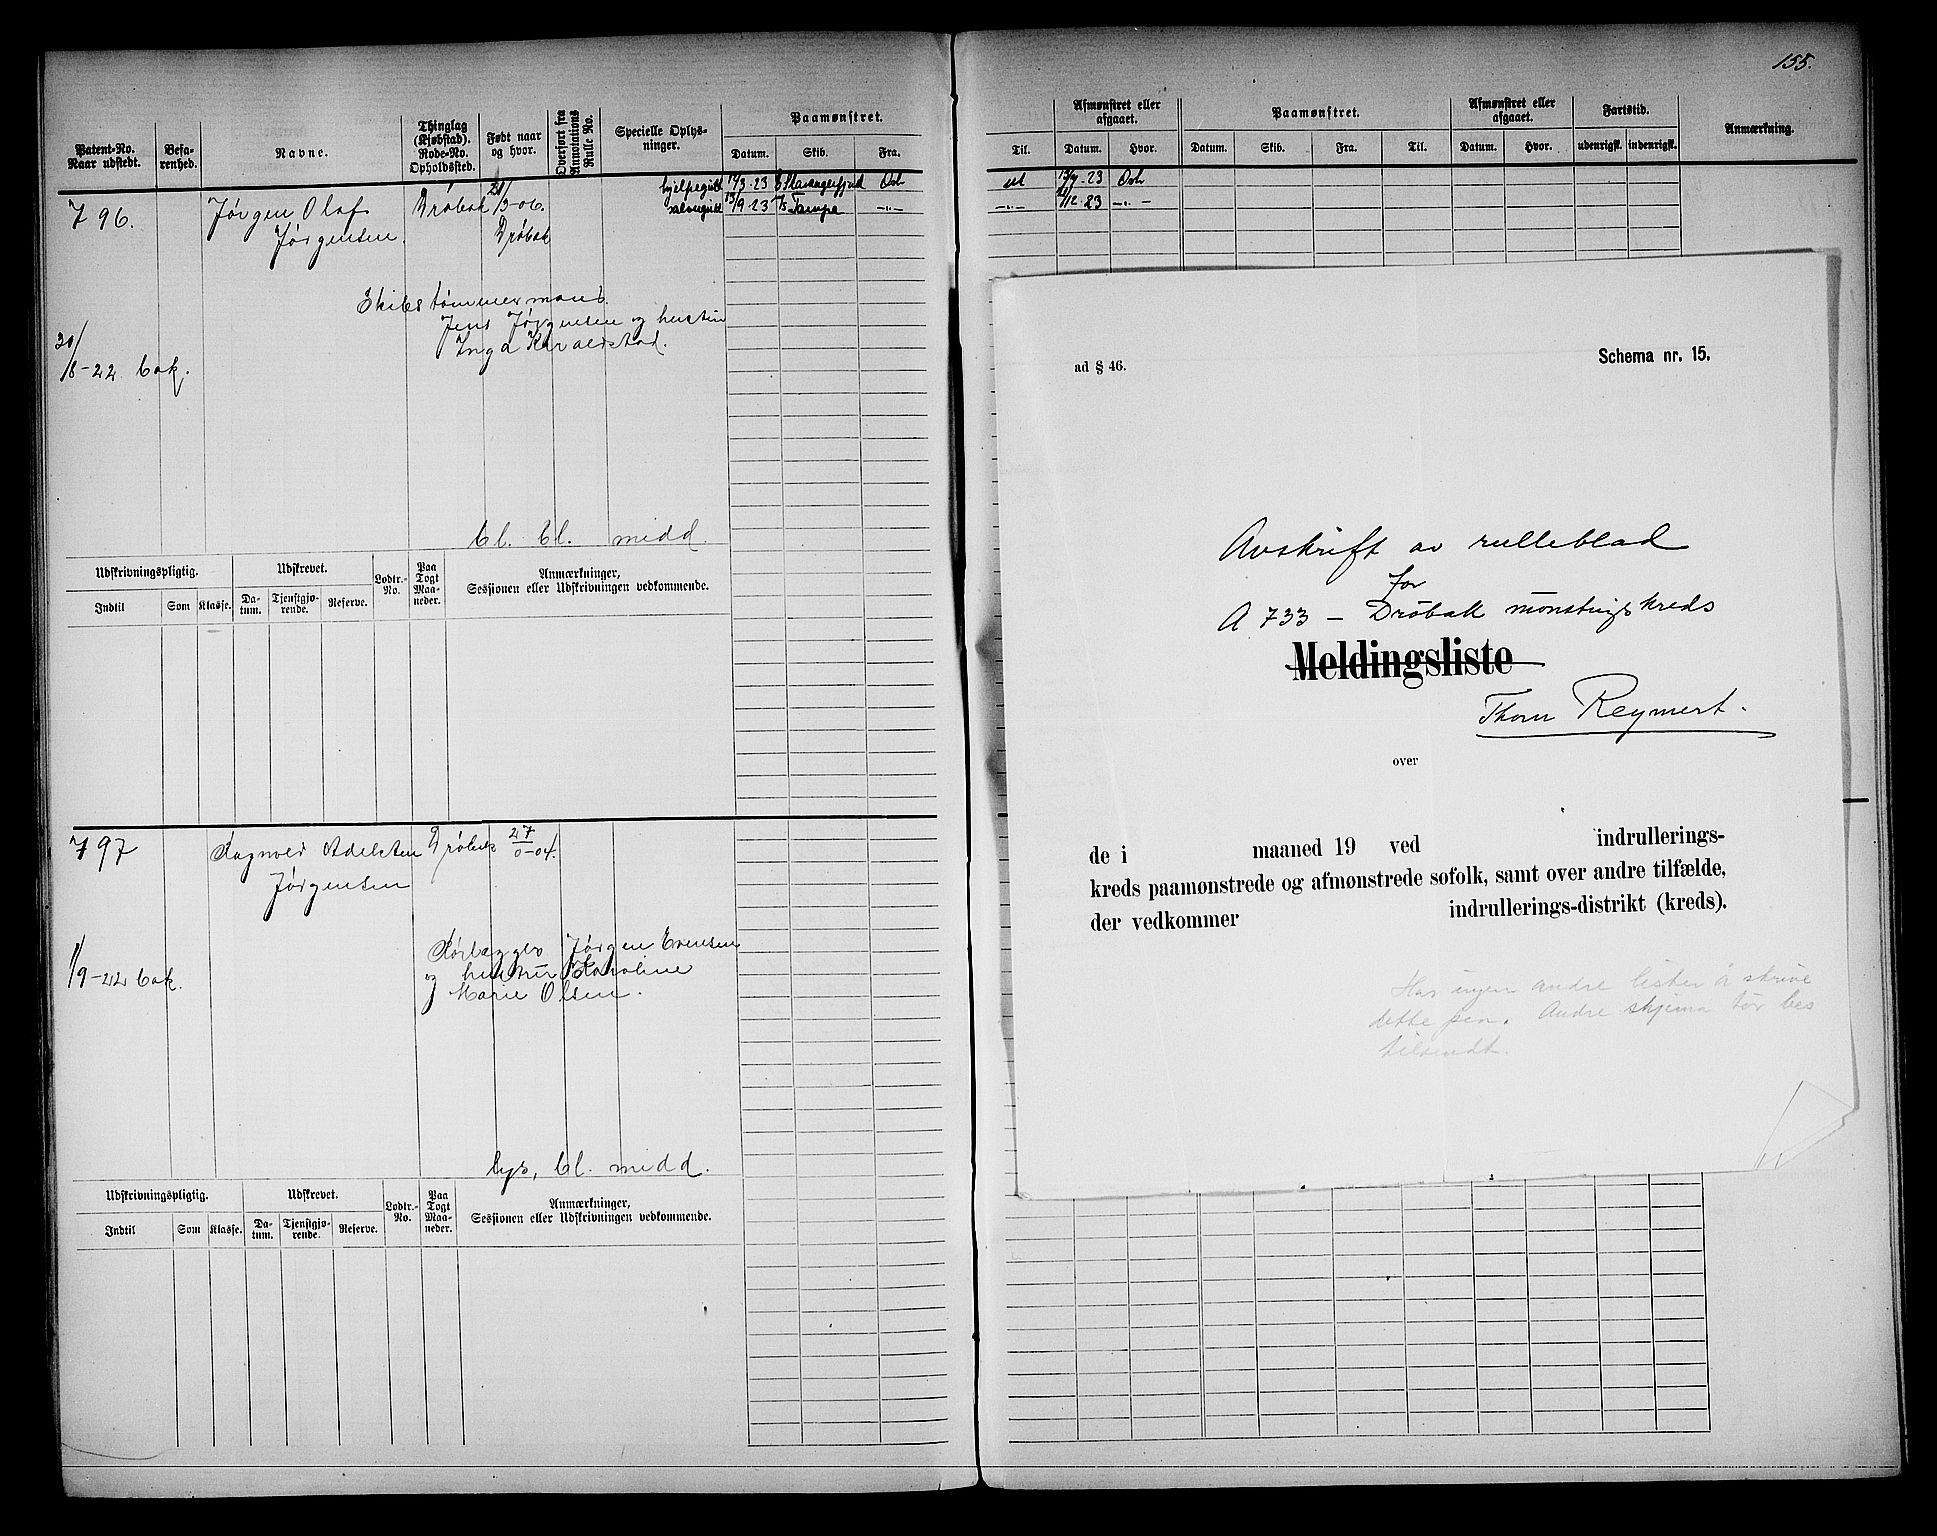 155.
Patent-No. Naar udstedt.
Befa-renhed.
Navne.
Thinglag (Kjøbstad). Rode-No. Opholdssted.
Født naar og hvor.
Overført fra Annotations Rulle No.
Specielle Oplys-ninger.
Paamønstret.
Datum. Skib. Fra.
Til.
Afmønstret eller afgaaet.
Datum. Hvor.
Paamønstret.
Datum. Skib. Fra. Til.
Afmønstret eller afgaaet.
Datum. Hvor.
Fartstid.
udenrigsk. indenrigsk.
Anmærkning.
796. Jørgen Olaf Drøbak 21/3-06. hjelpegutt 14/3-23 Stavangerfjord Osl ut 13/9-23 Osl
Jørgensen. Drøbak 13/9-23 Tampa -"- -"- /12-23 -"-
Skibstømmermand
Jens Jørgensen og hustru
Inga Haraldstad.
30/8-22 bok.
bl. bl. midd.
Udskrivningspligtig. Udskrevet. Lodtr.-No. Paa Togt Maa-neder. Anmærkninger,
Sessionen eller Udskrivningen vedkommende.
Indtil Som Klasse. Da-tum. Tjenstgjø-rende. Reserve.
797 Ragnvald Adelsten Drøbak 27/ -04.
Jørgensen
Jørgen Evensen
og hustru Karoline
Marie Olsen.
1/9-22 bok.
lys, bl. midd.
Udskrivningspligtig. Udskrevet. Lodtr.-No. Paa Togt Maa-neder. Anmærkninger,
Sessionen eller Udskrivningen vedkommende.
Indtil Som Klasse. Da-tum. Tjenstgjø-rende. Reserve.
ad § 46. Schema nr. 15.
Avskrift av rulleblad
for
A 733 - Drøbak mønstringskreds
Meldingsliste
Thorn Reymert.
over
de i maaned 19 ved indrullerings-
kreds paamønstrede og afmønstrede søfolk, samt over andre tilfælde,
der vedkommer indrullerings-distrikt (kreds).
Har ingen andre lister å skrive
dette på. Andre skjema tør bes
tilsendt.